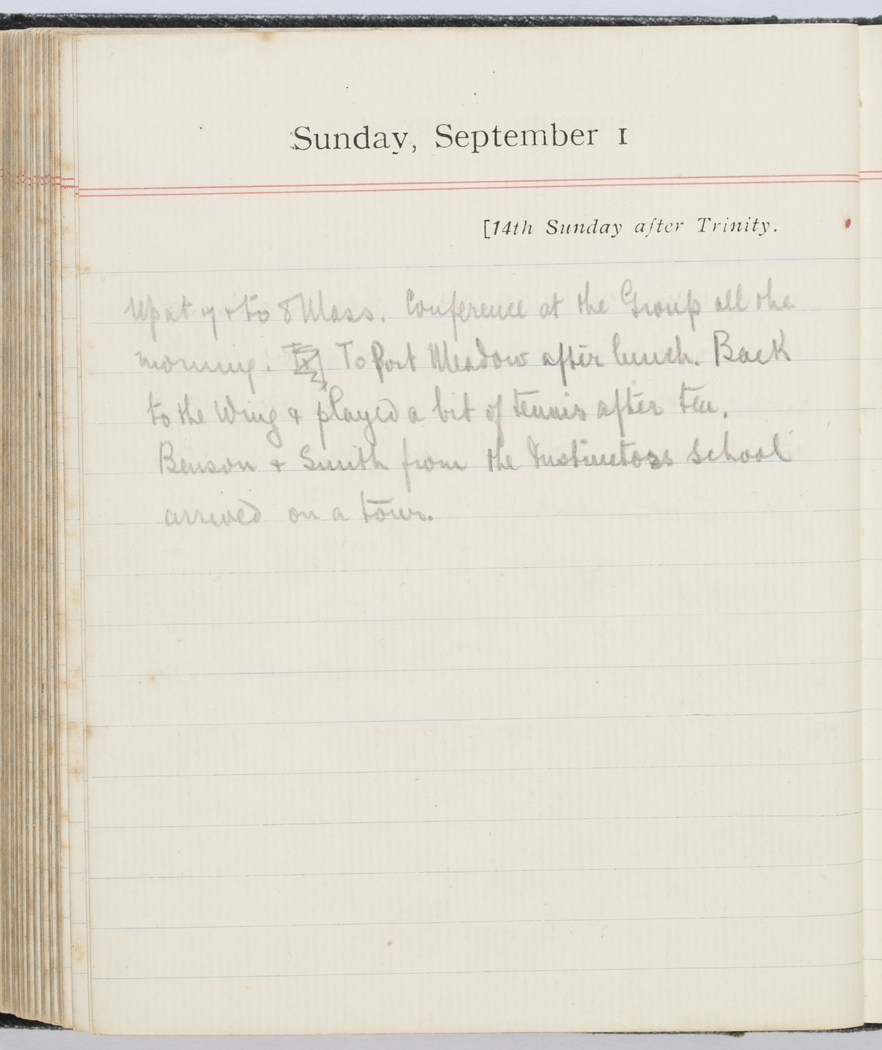 Sunday, September 1
[14th Sunday after Trinity.
Up at 7 & to 8 Mass. Conference at the Group all the
morning. To Port Meadow after lunch. Back
to the Wing & played a bit of tennis after tea.
Benson & Smith from the Instructors School
arrived on a tour.